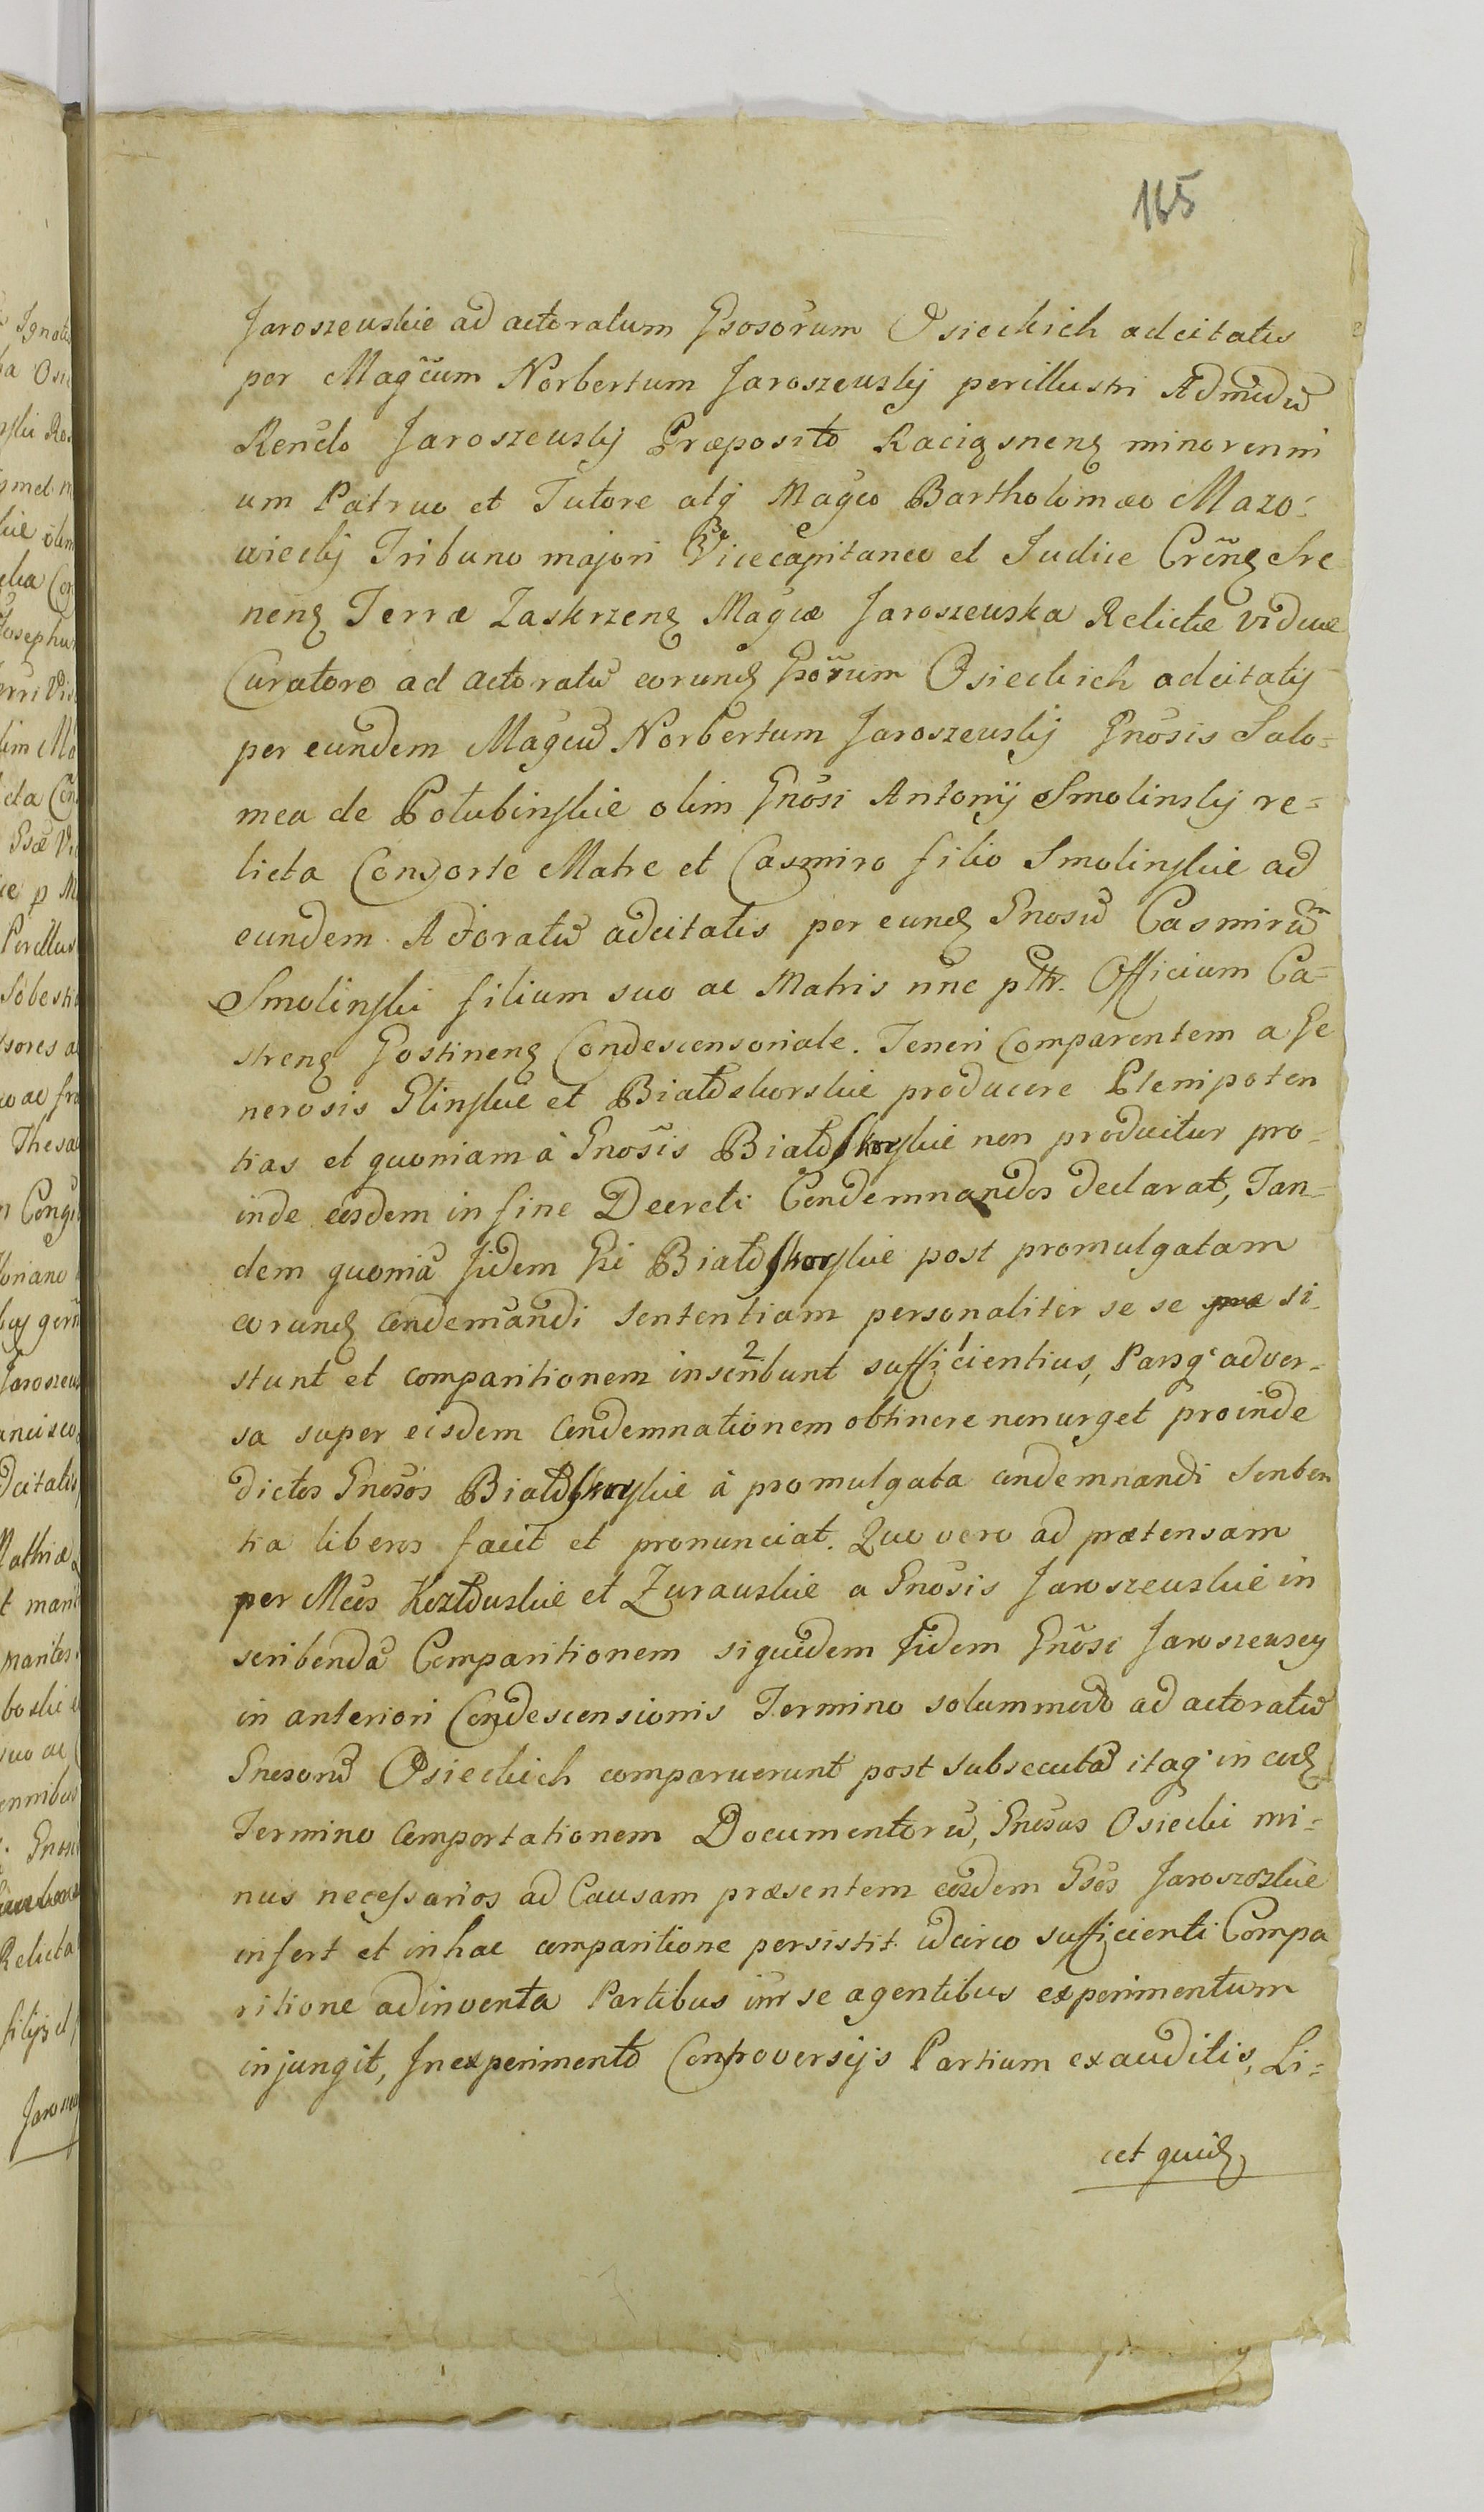 165
Jaroszewskie ad actoratum Gsosorum Osieckich adcitatis
per Magcum Norbertum Jaroszewskij perillustri Admdu
Rendo Jaroszewskij Præposito Raciąsnenę minorenni
um Patruo et Tutore atq Magco Bartholomæo Mazo:
wieckij Tribuno majori Vicecapitaneo et Judice Crēnę Sre
nenę Terræ Zaskrzenę Magcæ Jaroszewska Relictæ viduæ
Curatore ad actoratu eorundę Gsorum Osieckich adcitatis
per eundem Magcu Norbertum Jaroszewskij Gnosis Salo=
mea de Połubinskie olim Gnosi Antonij Smolinskij re=
licta Consorte Matre et Casmiro filio Smolinskie ad
eundem Actoratu adcitatis per eundę Gnosu Casmirum
Smolinski filium suo ac Matris nnc pttr. Officium Ca=
strenę Gostinenę Condescensoriale. Teneri Comparentem a Ge
nerosis Glinskie et Białoskorskie producere Plenipoten
tias et quoniam à Gnosis Białoskorskie non producitur pro=
inde eosdem in fine Decreti Condemnandos declarat, Tan=
dem quonia Iidem Gsi Białoskorskie post promulgatam
eorundę condemnandi sententiam personaliter se se si=
stunt et comparitionem inscribunt 2 sufficientius 1, Parsq adver=
sa super eisdem condemnationem obtinere non urget proinde
dictos Gnosos Białoskorskie à promulgata condemnandi senten
tia liberos facit et pronunciat. Quo vero ad prætensam
per Mcos Kozłowskie et Zurawskie a Gnosis Jaroszewskie in
scribenda Comparitionem siquidem Iidem Gnosi Jaroszewscy
in anteriori Condescensionis Termino solummodo ad actoratu
Gnosoru Osieckich comparuerunt post subsecuta itaq in eodę
Termino comportationem Documentoru, Gnosus Osiecki mi=
nus necessarios ad Causam præsentem eosdem Gsos Jaroszewskie
infert et in hac comparitione persistit idcirco sufficienti Compa
ritione adinventa Partibus inr se agentibus experimentum
injungit, In experimento Controversijs Partium exauditis, Li=
cet quidę